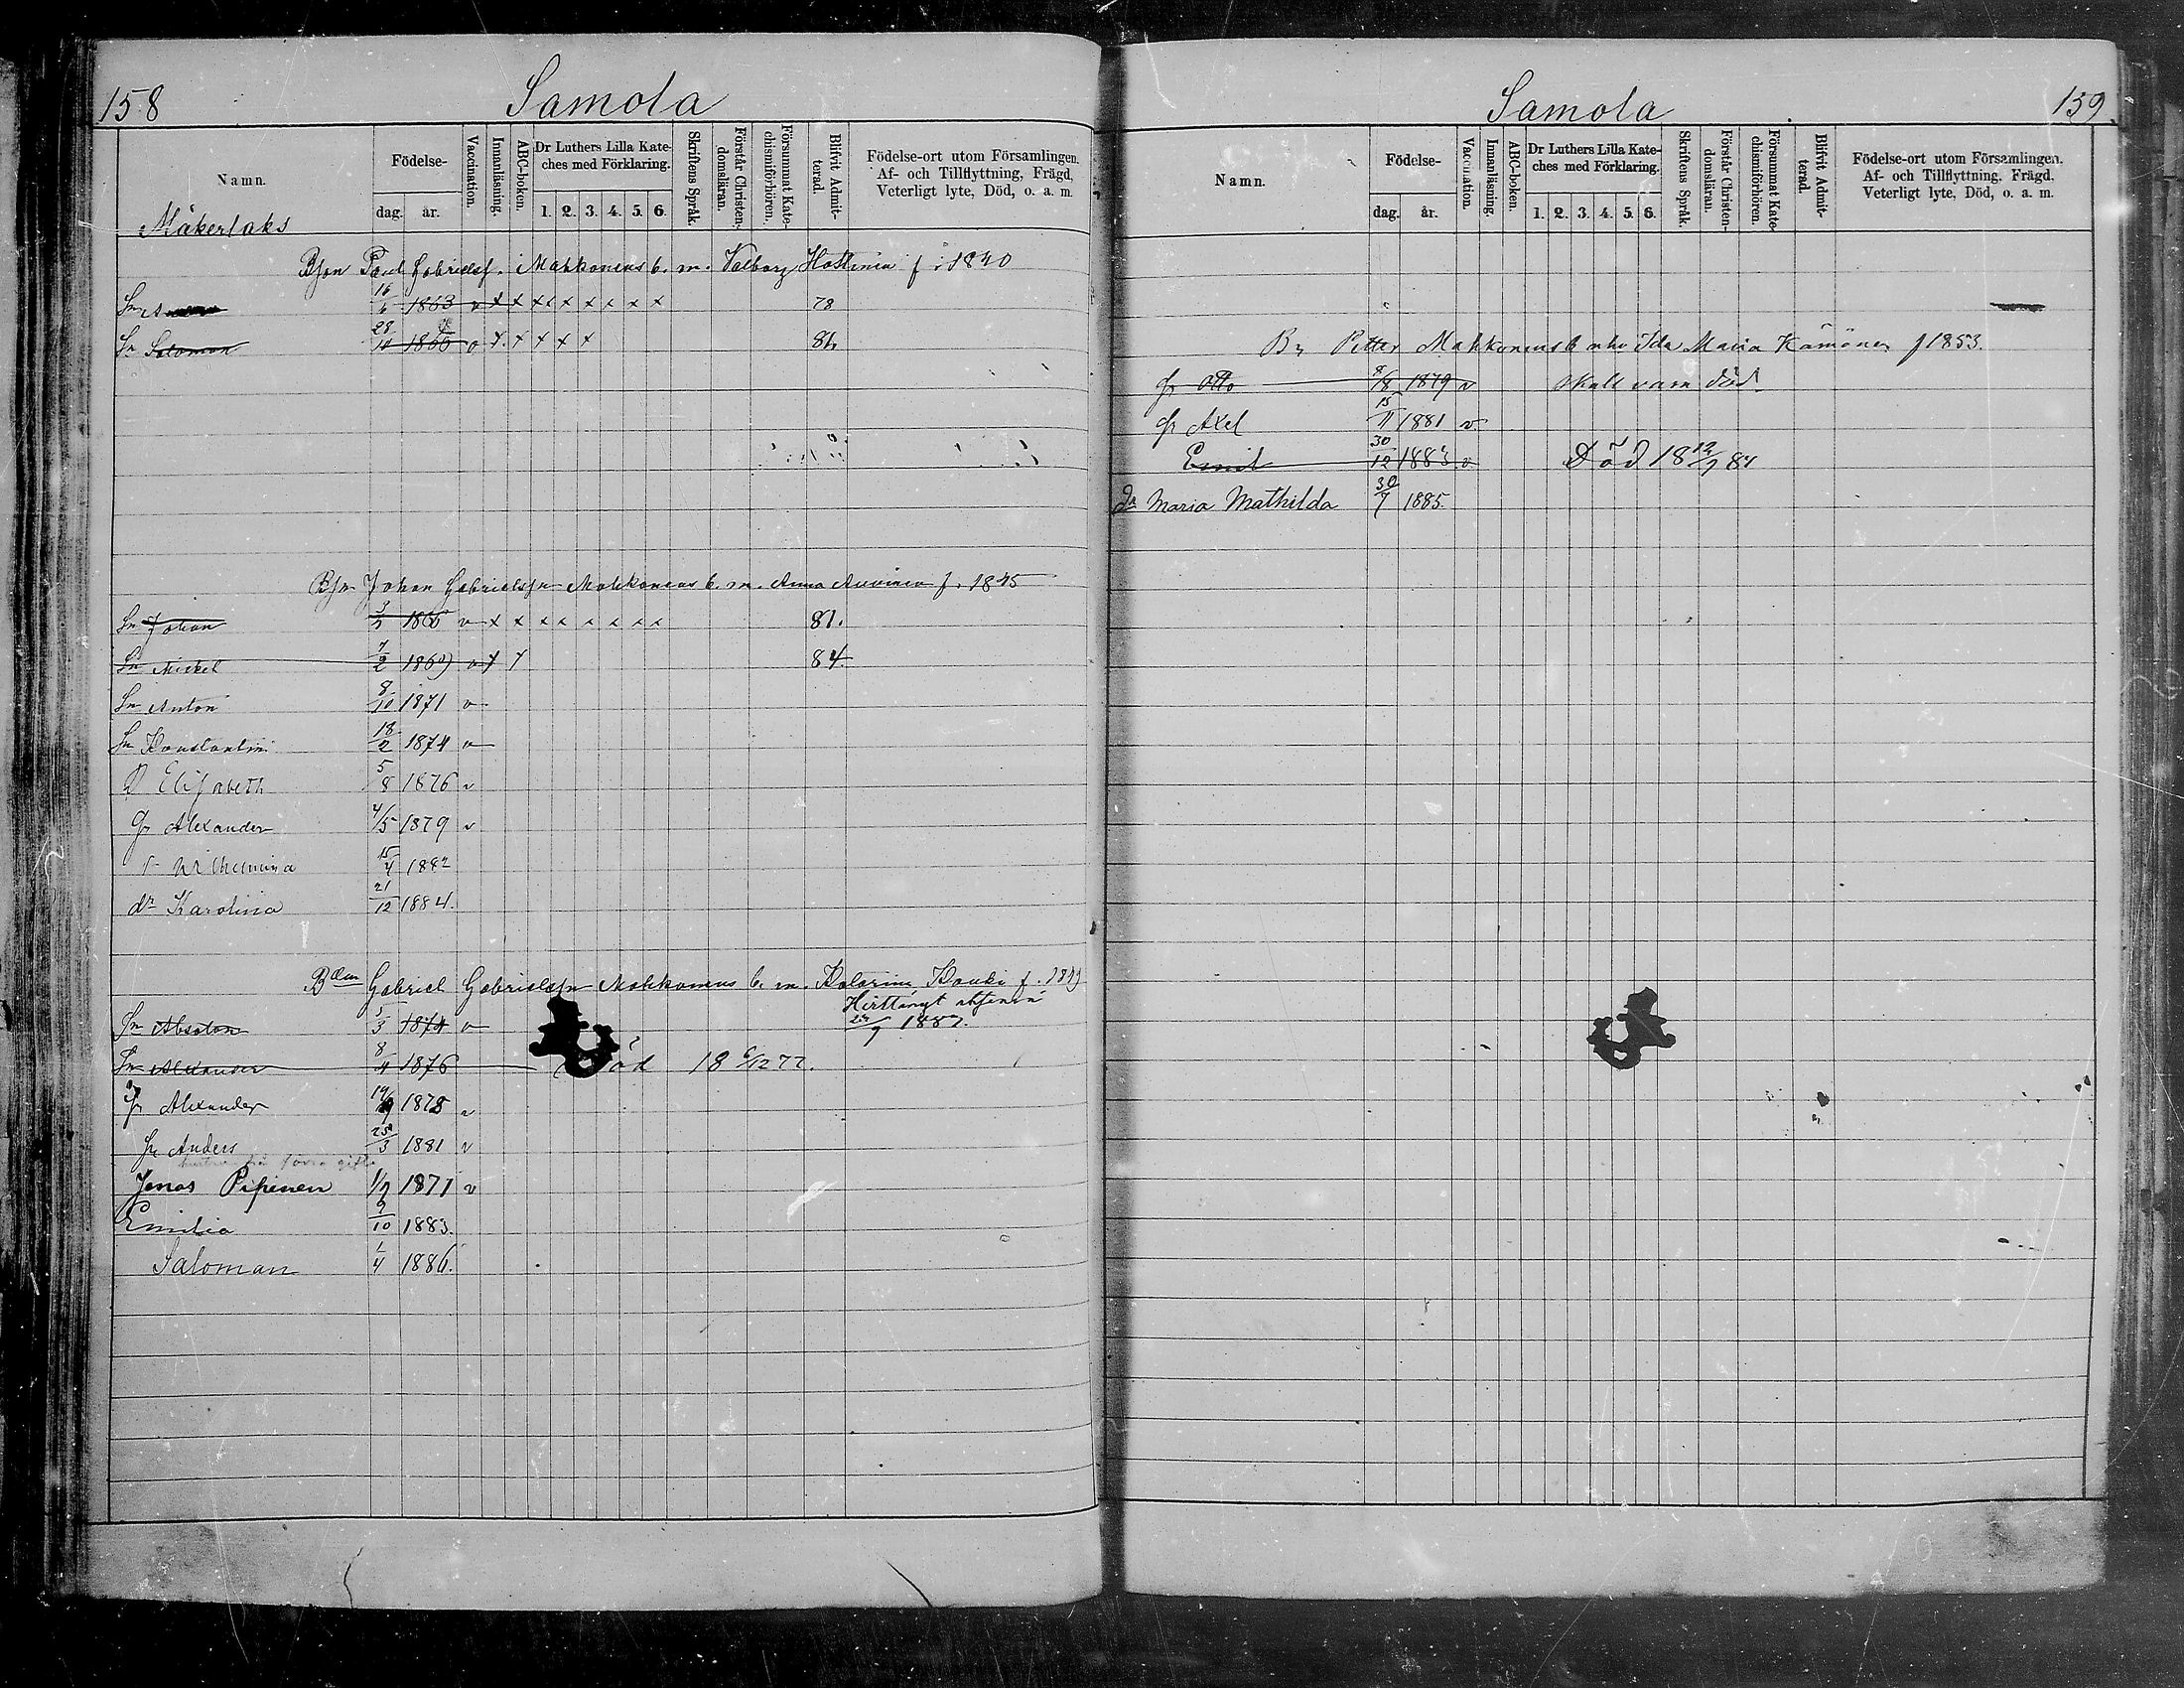 158
Samola
Namn.
Födelse-
dag. år.
Vaccination.
Innanläsning.
ABC-boken.
Dr Luthers Lilla Kate-
ches med Förklaring.
1. 2. 3. 4. 5. 6.
Skriftens Språk.
Förstår Christen-
domsläran.
Försummat Kate-
chismiförhören.
Blifvit Admit-
terad.
Födelse-ort utom Församlingen.
Af- och Tillflyttning, Frägd,
Veterligt lyte, Död, o. a. m.
Mäkerlaks
Bjon Paul Gabrielsf. Mahkonens b. m. Valborg f. 1840
16/6 1863 v x x x x x x x x x 78
Sn Salomon 28/10 1866 v x x x x x 81.
Bjn Johan Gabrielsfn Mahkonens b. m. Anna Auvinen f. 1845
Sn Johan 3/2 1865 v x x x x x x x x 81.
Sn Mickel 7/2 1869 v x x 84
Sn Anton 8/10 1871 v
Sn Konstantin 18/2 1874 v
D Elisabeth 5/8 1876 v
Gr Alexander 4/5 1879 v
Wilhelmina 15/4 1882
dr Karolina 21/12 1884.
Gabriel Gabrielsfn Mahkonens b. m. Katarina Kouki f.
Sn Absalon 5/3 1874 v Hirttänyt ittensä
/9 1887.
Sn Alexander 8/4 1876 Död 18 6/12 77.
Alexander 1878 v
Gr Anders 25/3 1881 v
Jonas Pipinen 1/9 1871 v
Emilia 9/10 1883.
Saloman 1/4 1886.
Samola
159.
Namn.
Födelse-
dag. år.
Vaccination.
Innanläsning.
ABC-boken.
Dr Luthers Lilla Kate-
ches med Förklaring.
1. 2. 3. 4. 5. 6.
Skriftens Språk.
Förstår Christen-
domsläran.
Försummat Kate-
chismiförhören.
Blifvit Admit-
terad.
Födelse-ort utom Församlingen.
Af- och Tillflyttning, Frägd,
Veterligt lyte, Död, o. a. m.
Petter Mahkonens b Ida Maria Kämönen f 1853.
Gr Otto 8/8 1879 v skall vara död
Gr Axel 15/11 1881 v
Emil 30/12 1883 v Död 18 12/7 84
Dr Maria Mathilda 30/7 1885.